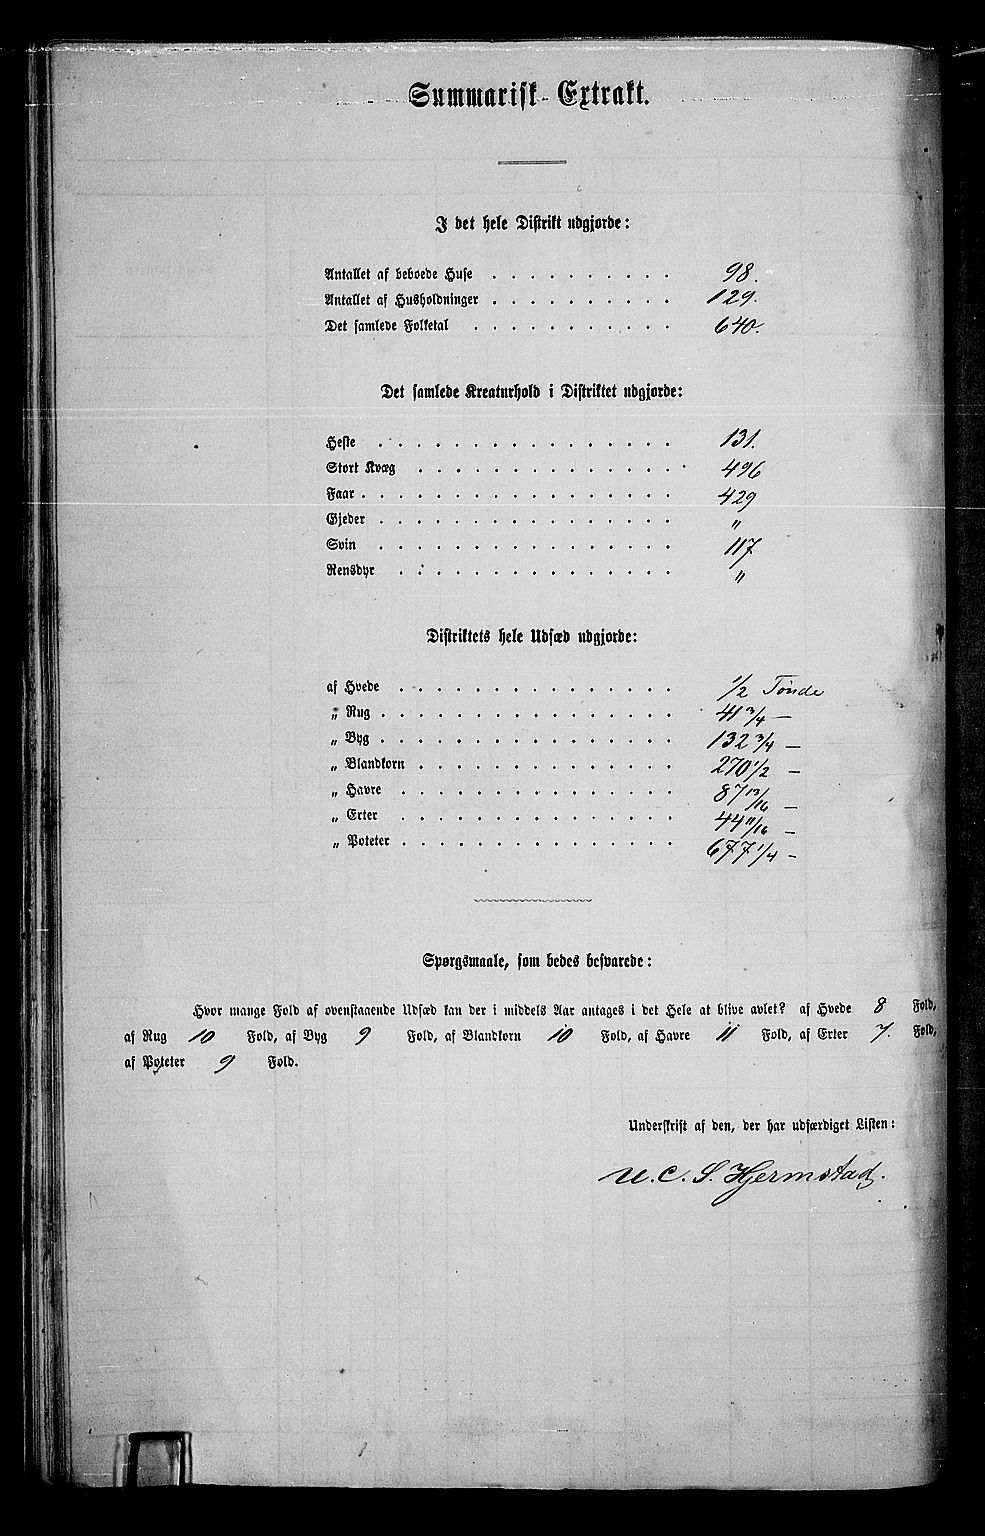 Summarisk Extrakt.
I det hele Distrikt udgjorde:
Antallet af beboede Huse . . . . . . . . . . 98.
Antallet af Husholdninger . . . . . . . . . . 129.
Det samlede Folketal . . . . . . . . . . . 640.
Det samlede Kreaturhold i Distriktet udgjorde:
Heste . . . . . . . . . . . . . . . . 131.
Stort Kvæg . . . . . . . . . . . . . . 496
Faar . . . . . . . . . . . . . . . . . 429
Gjeder . . . . . . . . . . . . . . . . "
Svin . . . . . . . . . . . . . . . . 117
Rensdyr . . . . . . . . . . . . . . . "
Distriktets hele Udsæd udgjorde:
af Hvede . . . . . . . . . . . . . . . 1/2 Tønde
„ Rug . . . . . . . . . . . . . . . . 41 3/4 —
„ Byg . . . . . . . . . . . . . . . . 132 3/4 —
„ Blandkorn . . . . . . . . . . . . . . 270 1/2 —
„ Havre . . . . . . . . . . . . . . . 87 13/16 —
„ Erter . . . . . . . . . . . . . . . 44 11/16 —
„ Poteter . . . . . . . . . . . . . . . 677 1/4 —
Spørgsmaale, som bedes besvarede:
Hvor mange Fold af ovenstaaende Udsæd kan der i middels Aar antages i det Hele at blive avlet? af Hvede 8 Fold,
af Rug 10 Fold, af Byg 9 Fold, af Blandkorn 10 Fold, af Havre 11 Fold, af Erter 7. Fold,
af Poteter 9 Fold.
Underskrift af den, der har udfærdiget Listen:
U. C. S. Hjermstad.